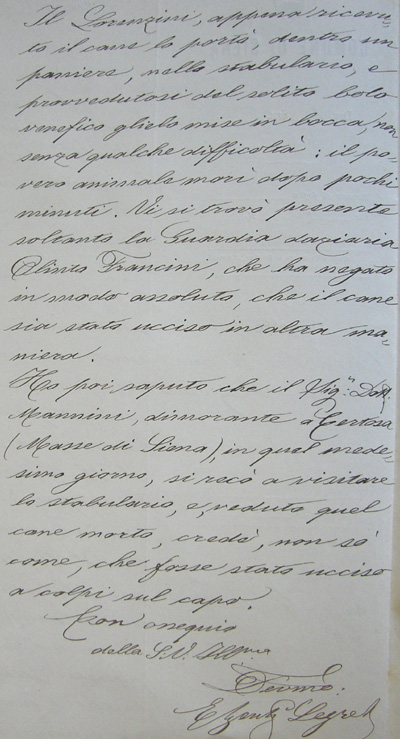 Il Lorenzini, appena ricevu=
to il cane lo portò, dentro un
paniere, nello stabulario, e
provvedutosi del solito bolo
venefico glielo mise in bocca, non
senza qualche difficoltà: il po=
vero animale morì dopo pochi
minuti. Vi si trovò presente
soltanto la Guardia daziaria
Olinto Francini, che ha negato
in modo assoluto, che il cane
sia stato ucciso in altra ma=
niera.
Ho poi saputo che il Sig.r Dott.
Mannini, dimorante a Certosa
(Masse di Siena), in quel mede=
simo giorno, si recò a visitare
lo stabulario, e, veduto quel
cane morto, credè, non sò
come, che fosse stato ucciso
a colpi sul capo.
Con ossequio
della S.V. Ill.ma